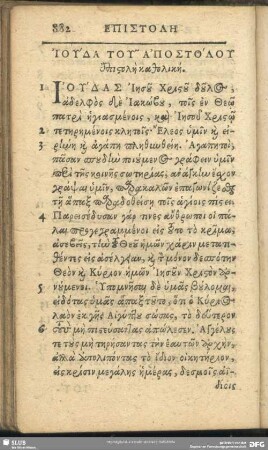 882 ΕΠΙΣΤΟΛΗ
ΙΟΥΔΑ ΤΟΥ ΑΠΟΣΤΟΛΟΥ
Ἐπιστολὴ καθολική.
1 ΙΟΥΔΑΣ Ἰησοῦ Χριστοῦ δοῦλος,
ἀδελφὸς δὲ Ἰακώβου, τοῖς ἐν Θεῷ
πατρὶ ἡγιασμένοις, καὶ Ἰησοῦ Χριστῷ
2 τετηρημένοις κλητοῖς· Ἔλεος ὑμῖν καὶ εἰ-
3 ρήνη καὶ ἀγάπη πληθυνθείη. Ἀγαπητοὶ
πᾶσαν σπουδὴν ποιούμενος γράφειν ὑμῖν
περὶ τῆς κοινῆς σωτηρίας, ἀνάγκην ἔσχον
γράψαι ὑμῖν, παρακαλῶν ἐπαγωνίζεσθαι
τῇ ἅπαξ παραδοθείσῃ τοῖς ἁγίοις πίστει.
4 Παρεισέδυσαν γάρ τινες ἄνθρωποι οἱ πά-
λαι προγεγραμμένοι εἰς τοῦτο τὸ κρῖμα,
ἀσεβεῖς, τὴν τοῦ Θεοῦ ἡμῶν χάριν μετατι-
θέντες εἰς ἀσέλγειαν, καὶ τὸν μόνον δεσπότην
Θεὸν καὶ Κύριον ἡμῶν Ἰησοῦν Χριστὸν ἀρ-
5 νούμενοι. Ὑπομνῆσαι δὲ ὑμᾶς βούλομαι,
εἰδότας ὑμᾶς ἅπαξ τοῦτο, ὅτι ὁ Κύριος
λαὸν ἐκ γῆς Αἰγύπτου σώσας, τὸ δεύτερον
6 τοὺς μὴ πιστεύσαντας ἀπώλεσεν. Ἀγγέλους
τε τοὺς μὴ τηρήσαντας τὴν ἑαυτῶν ἀρχὴν,
ἀλλὰ ἀπολιπόντας τὸ ἴδιον οἰκητήριον,
εἰς κρίσιν μεγάλης ἡμέρας, δεσμοῖς ἀϊ-
δίοις
SLUB
DFG